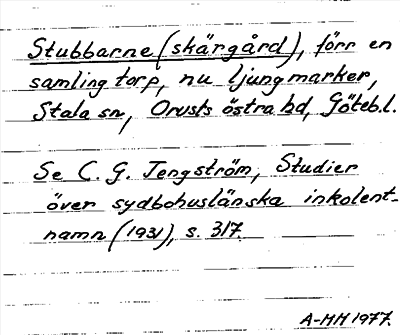 Stubbarne (skärgård), förr en
samling torp, nu ljungmarker,
Stala sn, Orusts östra hd, Göteb.l.
Se C. G. Tengström, Studier
över sydbohuslänska inkolent-
namn (1931), s. 317.
A-MH 1977.